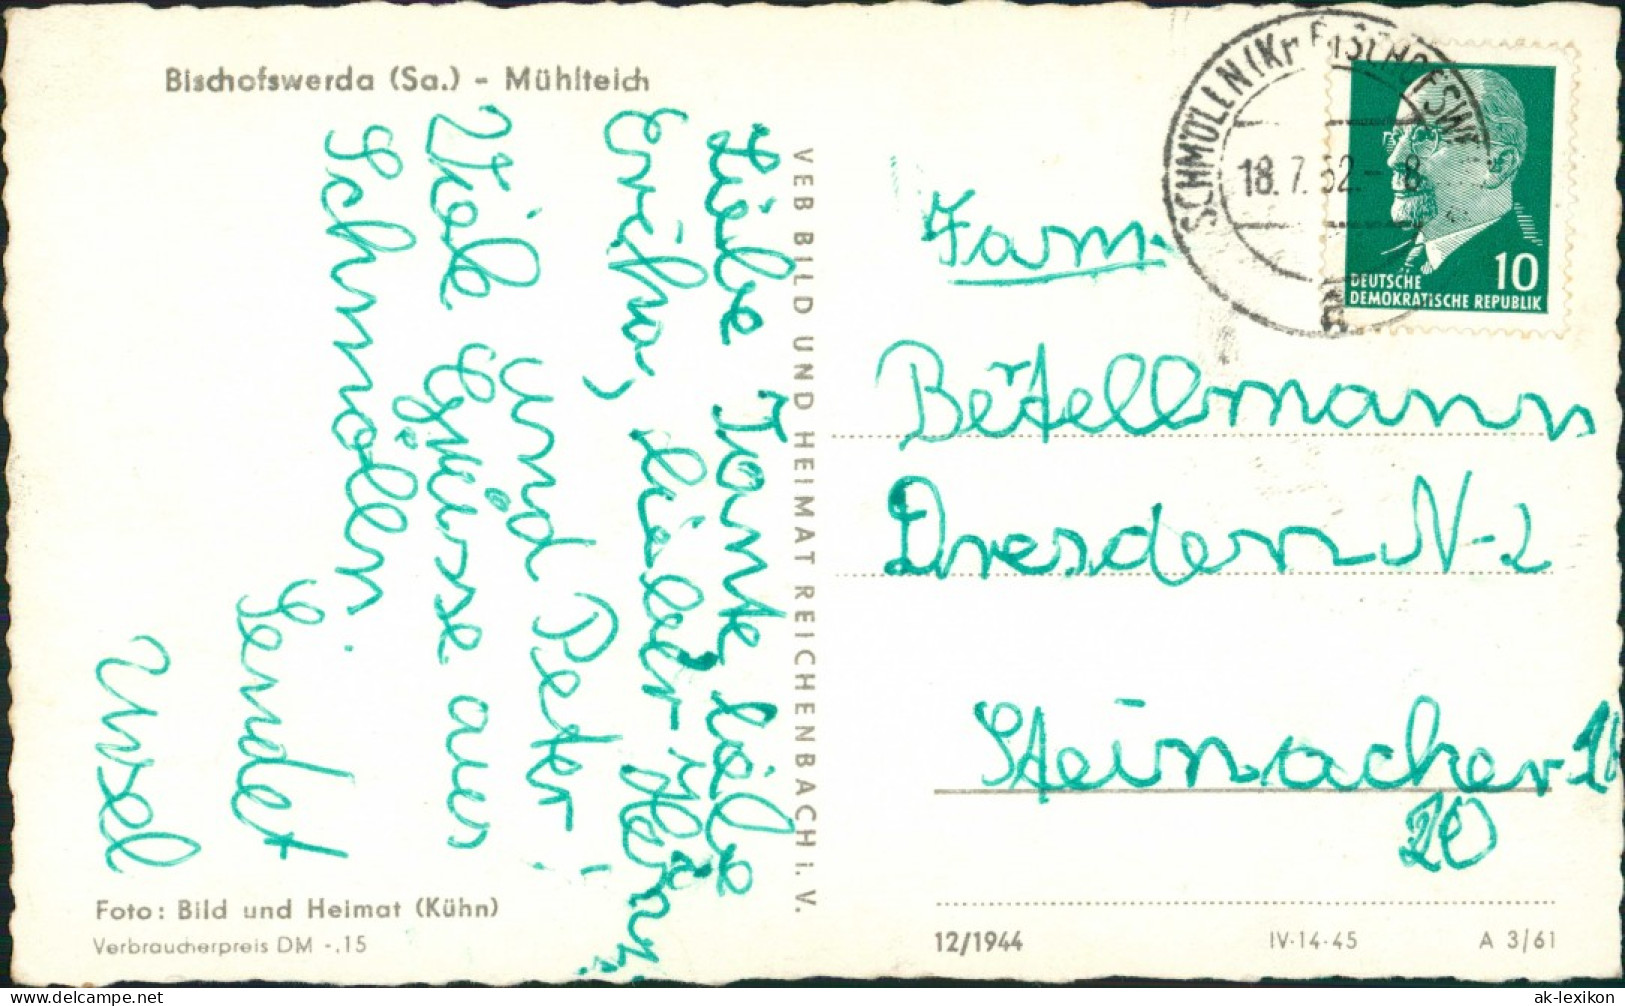 Bischofswerda (Sa.) - Mühlteich
Liebe Tante
Erika, lieber
und Peter!
Viele Grüsse aus
Schmölln.
Sendet
Ursel
Foto: Bild und Heimat (Kühn)
Verbraucherpreis DM -.15
VEB BILD UND HEIMAT REICHENBACH i. V.
SCHMÖLLN (Kr BISCHOFSW
18.7.62.-8
a
DEUTSCHE
DEMOKRATISCHE REPUBLIK
10
Fam.
Dresden N-2
Steinacher
20
12/1944
IV-14-45
A 3/61
hip.com
ak-lexikon